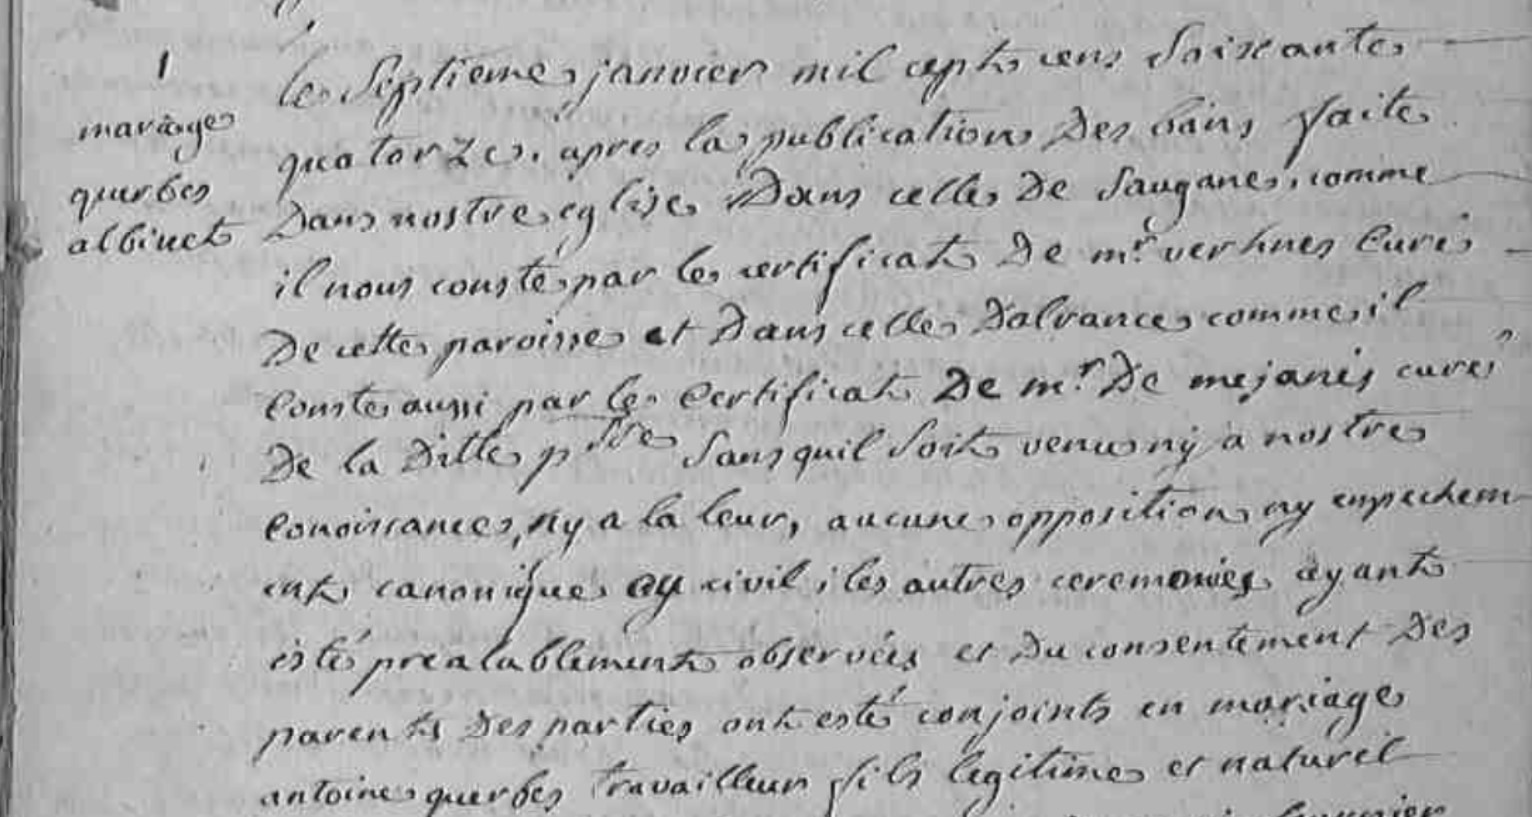 1
mariage
querbes
albinet
le septieme janvier mil cepts cens soixante
quatorze. apres la publication des bans faite
dans nostre eglise dans celle de Saugane, comme
il nous conste par le certificat de mr. verhnes curé
de cette paroisse et dans celle dalrance comme il
conste aussi par le certificat de mr. De mejanés curé
de la ditte psse sans quil soit venu ny a nostre
conoissance, ny a la leur, aucune opposition ny empechem
ent canonique ny civil, les autres ceremonies ayant
esté prealablement observées et du consentement des
parents des parties ont esté conjoints en mariage
antoine querbes travailleur fils legitime et naturel